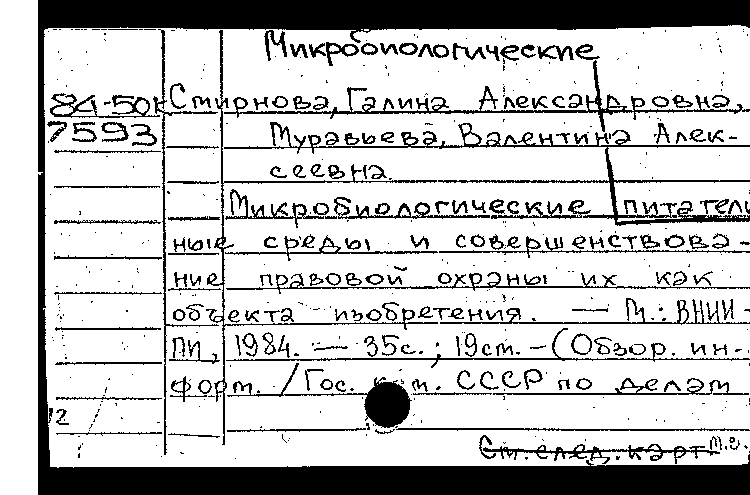 Микробиологические
84-50к Смирнова, Галина Александровна,
7593 Муравьева, Валентина Алек-
сеевна
Микробиологические питатель
ные среды и совершенствова-
ние правовой охраны их как
объекта изобретения. — М.: ВНИИ-
ПИ, 1984. — 35с.; 19см. - (Обзор. ин-
форм. / Гос. ком. СССР по делам
12
См. след. карт